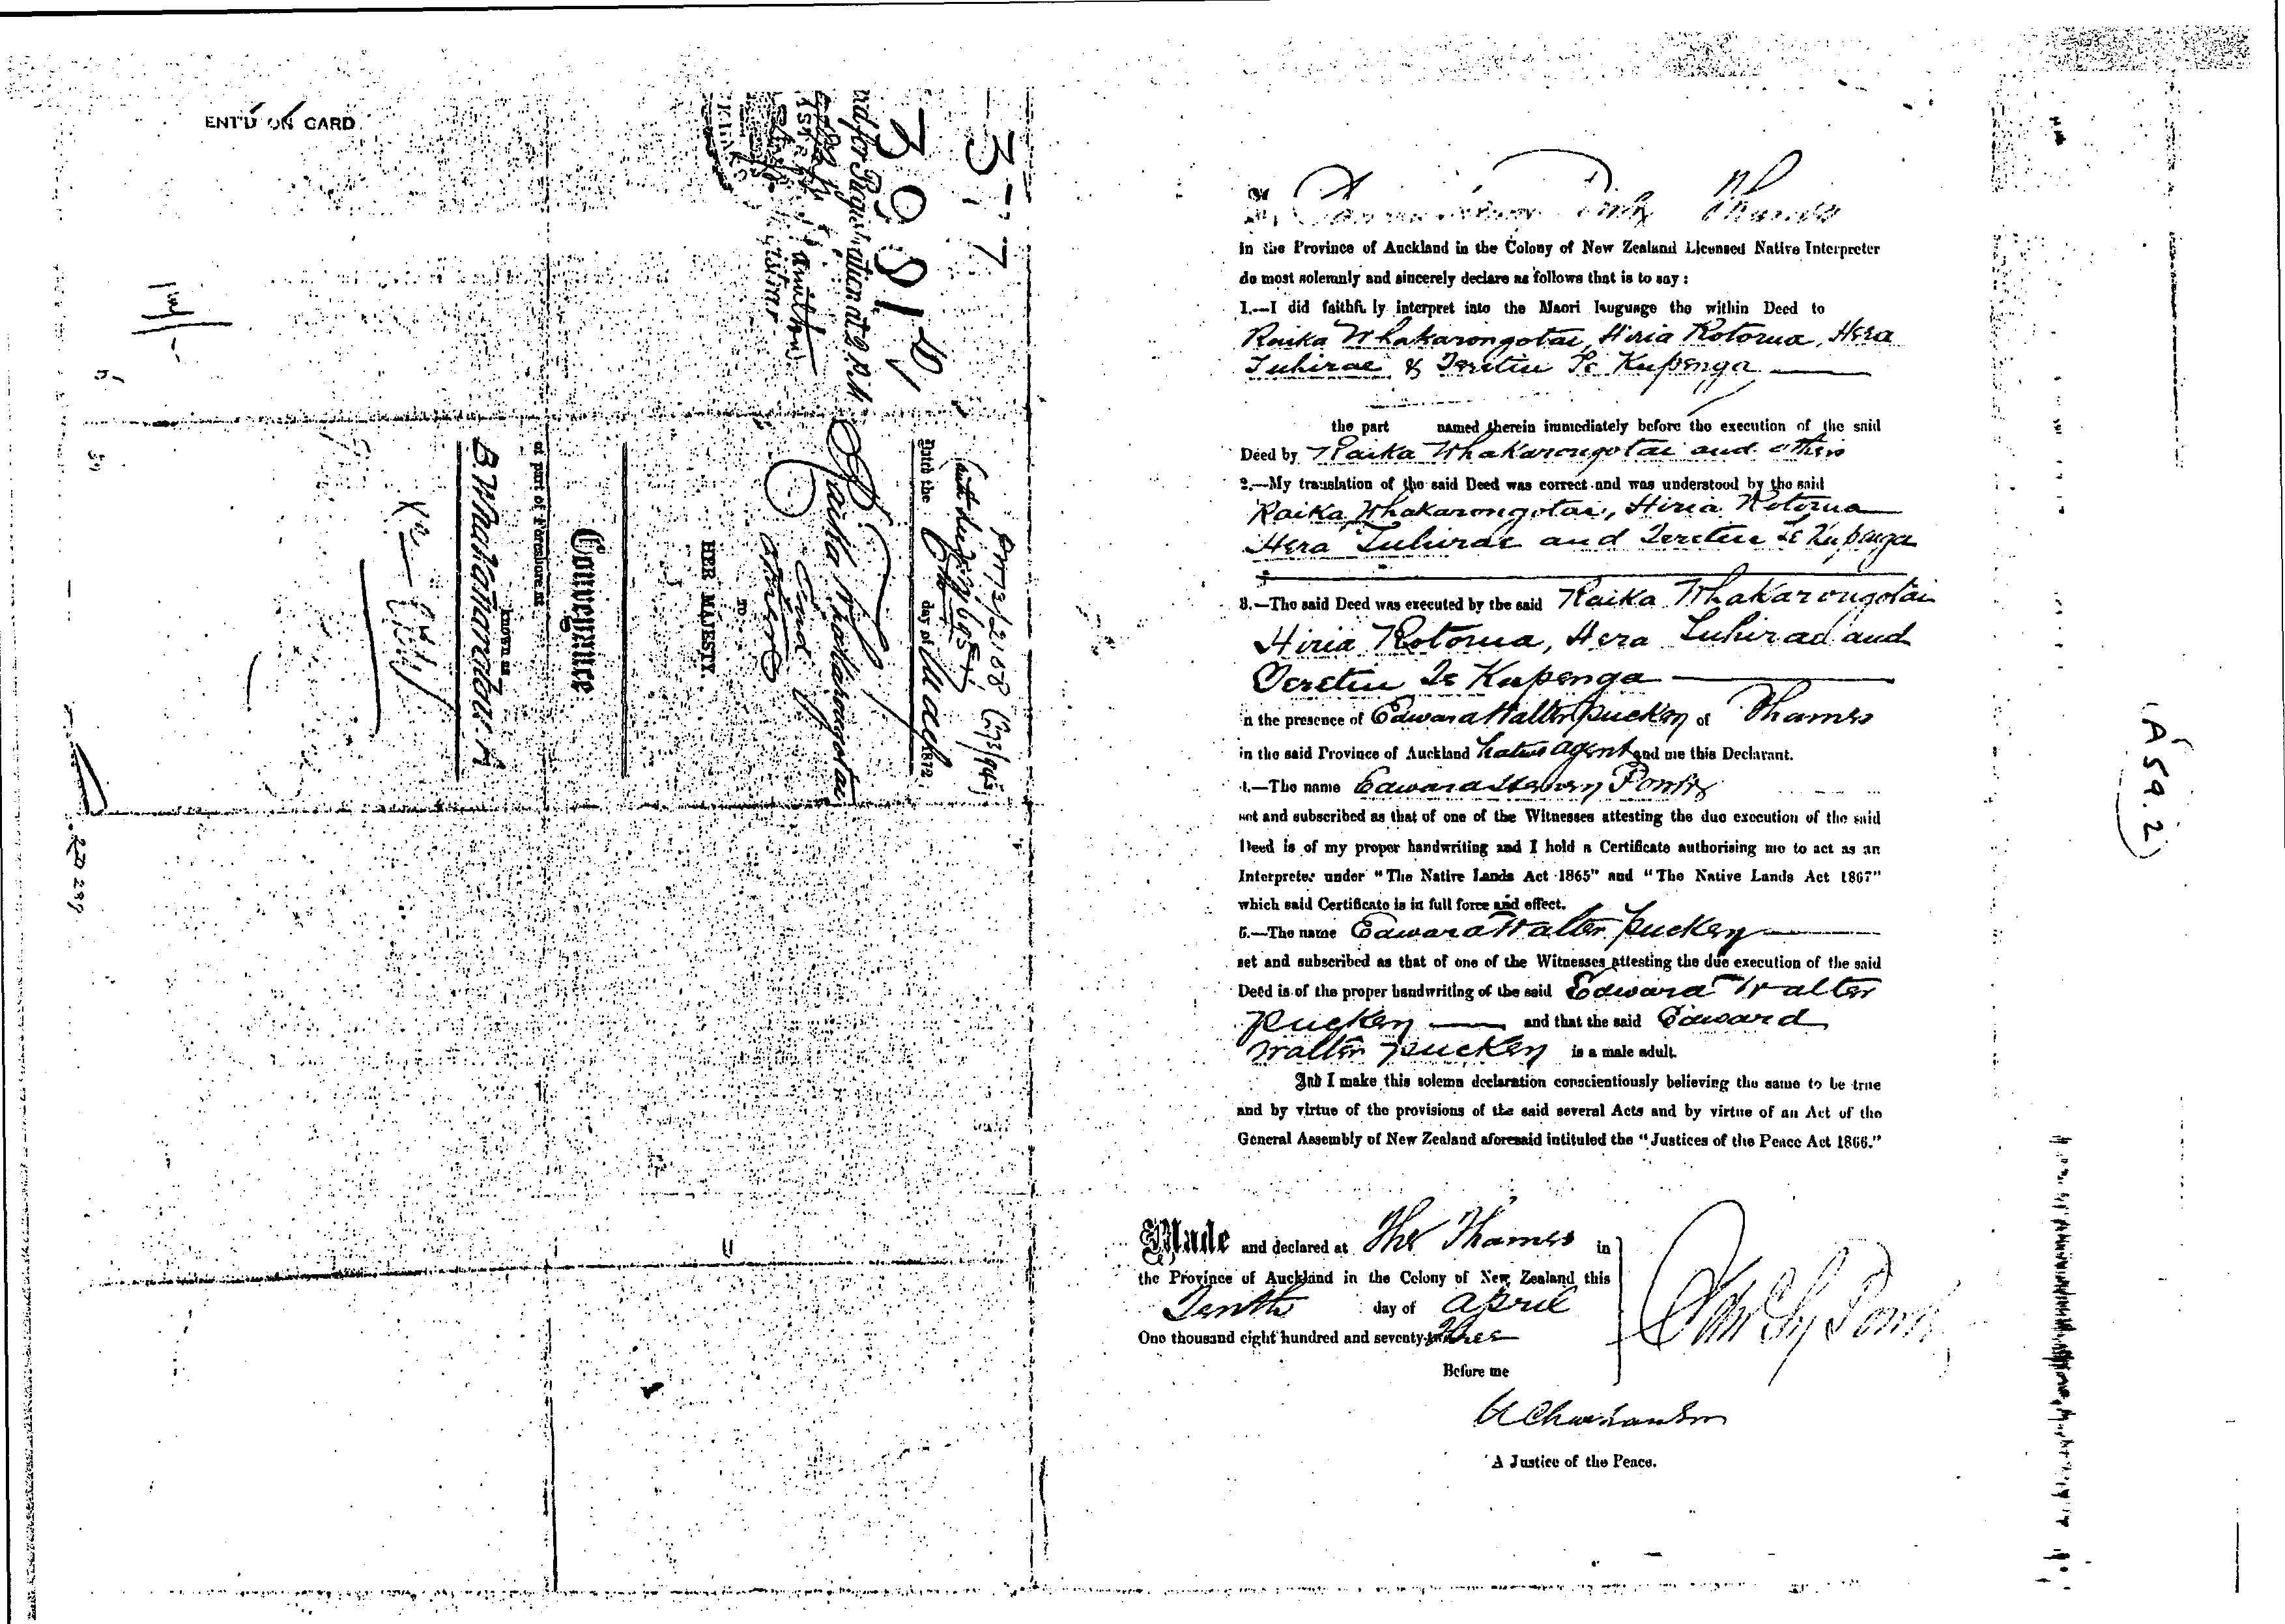 ENT'D ON CARD
377
39812
for Registration at 2 P.M.
Dated the day of March 1872
Raika Whakarongotai
and
others
TO
HER MAJESTY.
Conveyance
of part of Foreshore at
known as
B. Whakaharatau A
I,
Thames
in the Province of Auckland in the Colony of New Zealand Licensed Native Interpreter
do most solemnly and sincerely declare as follows that is to say:
1.—I did faithfully interpret into the Maori language the within Deed to
Raika Whakarongotai, Hiria Rotorua, Hera
Tuhirae & Teretiu Te Kupenga
the part named therein immediately before the execution of the said
Deed by Raika Whakarongotai and others
2.—My translation of the said Deed was correct and was understood by the said
Raika Whakarongotai, Hiria Rotorua
Hera Tuhirae and Teretiu Te Kupenga
3.—The said Deed was executed by the said Raika Whakarongotai
Hiria Rotorua, Hera Tuhirae and
Teretiu Te Kupenga
in the presence of Edward Walter Puckey of Thames
in the said Province of Auckland Native Agent and me this Declarant.
4.—The name Edward
set and subscribed as that of one of the Witnesses attesting the due execution of the said
Deed is of my proper handwriting and I hold a Certificate authorising me to act as an
Interpreter under "The Native Lands Act 1865" and "The Native Lands Act 1867"
which said Certificate is in full force and effect.
5.—The name Edward Walter Puckey
set and subscribed as that of one of the Witnesses attesting the due execution of the said
Deed is of the proper handwriting of the said Edward Walter
Puckey and that the said Edward
Walter Puckey is a male adult.
And I make this solemn declaration conscientiously believing the same to be true
and by virtue of the provisions of the said several Acts and by virtue of an Act of the
General Assembly of New Zealand aforesaid intituled the "Justices of the Peace Act 1866."
Made and declared at The Thames in
the Province of Auckland in the Colony of New Zealand this
Tenth day of April
One thousand eight hundred and seventy three
Before me
A Justice of the Peace.
(A59.2)